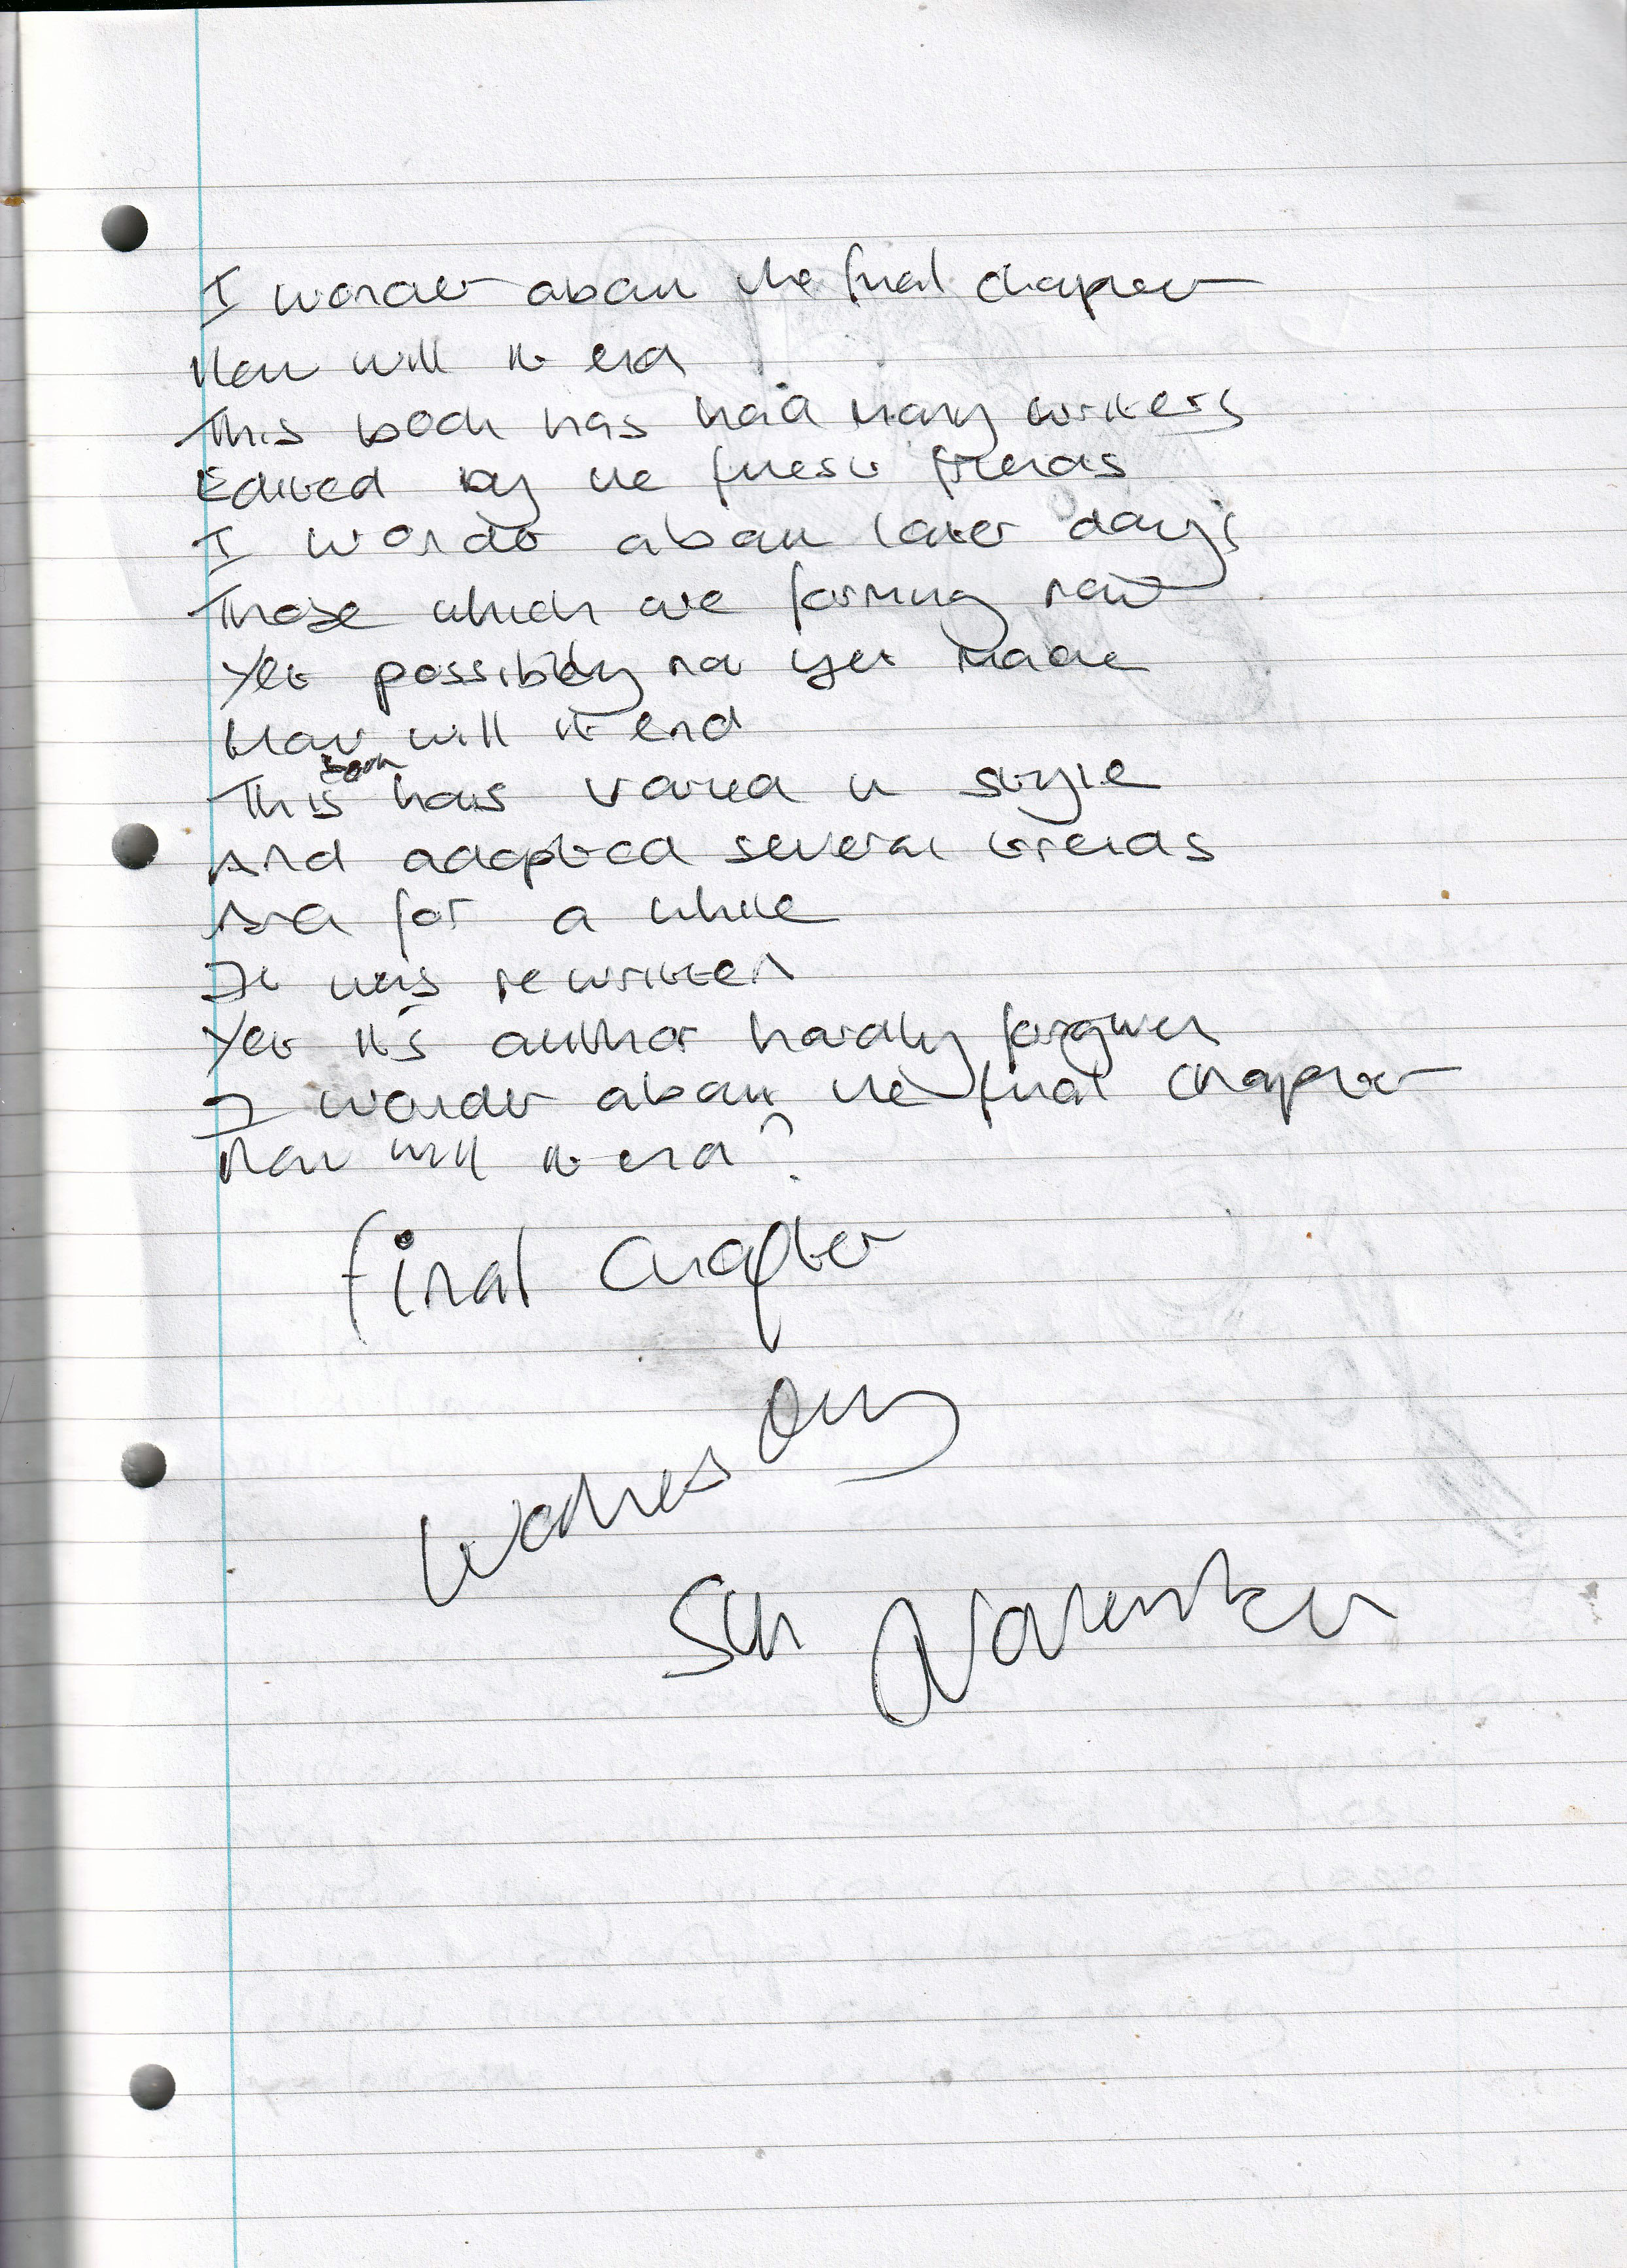 I wonder about the final chapter
How will it end
This book has had many writers
Edited by the finest friends
I wonder about later days
Those which are forming now
Yet possibly not yet made
How will it end
This book has varied in style
And adopted several trends
And for a while
It was rewritten
Yet it's author hardly forgiven
I wonder about the final chapter
How will it end?
Final Chapter
Wednesday
5th November